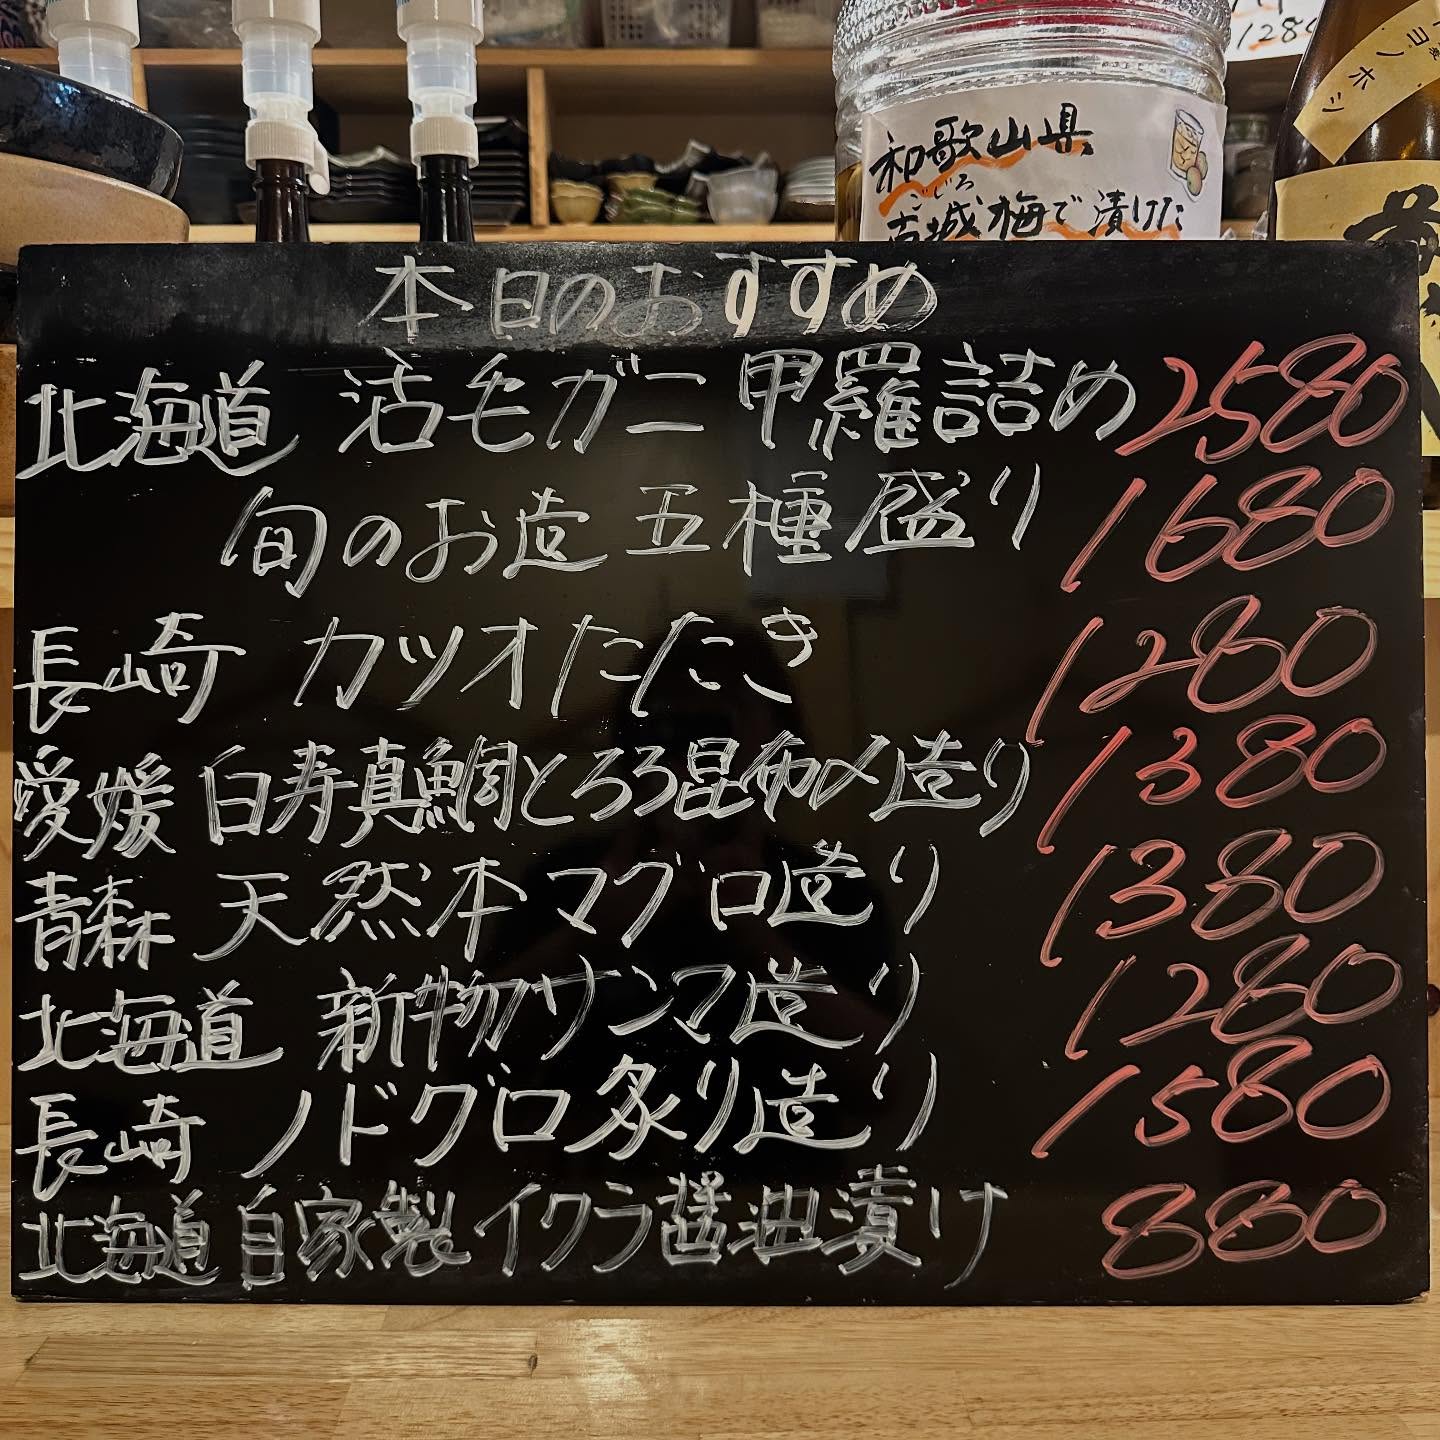 1280
和歌山県
ごじろ
古城梅で漬けた
ヨノホシ
本日のおすすめ
北海道 活毛ガニ 甲羅詰め 2580
旬のお造 五種盛り 1680
長崎 カツオたたき 1280
愛媛 白寿真鯛とろろ昆布〆造り 1380
青森 天然本マグロ造り 1380
北海道 新物サンマ造り 1280
長崎 ノドグロ炙り造り 1580
北海道 自家製イクラ醤油漬け 880